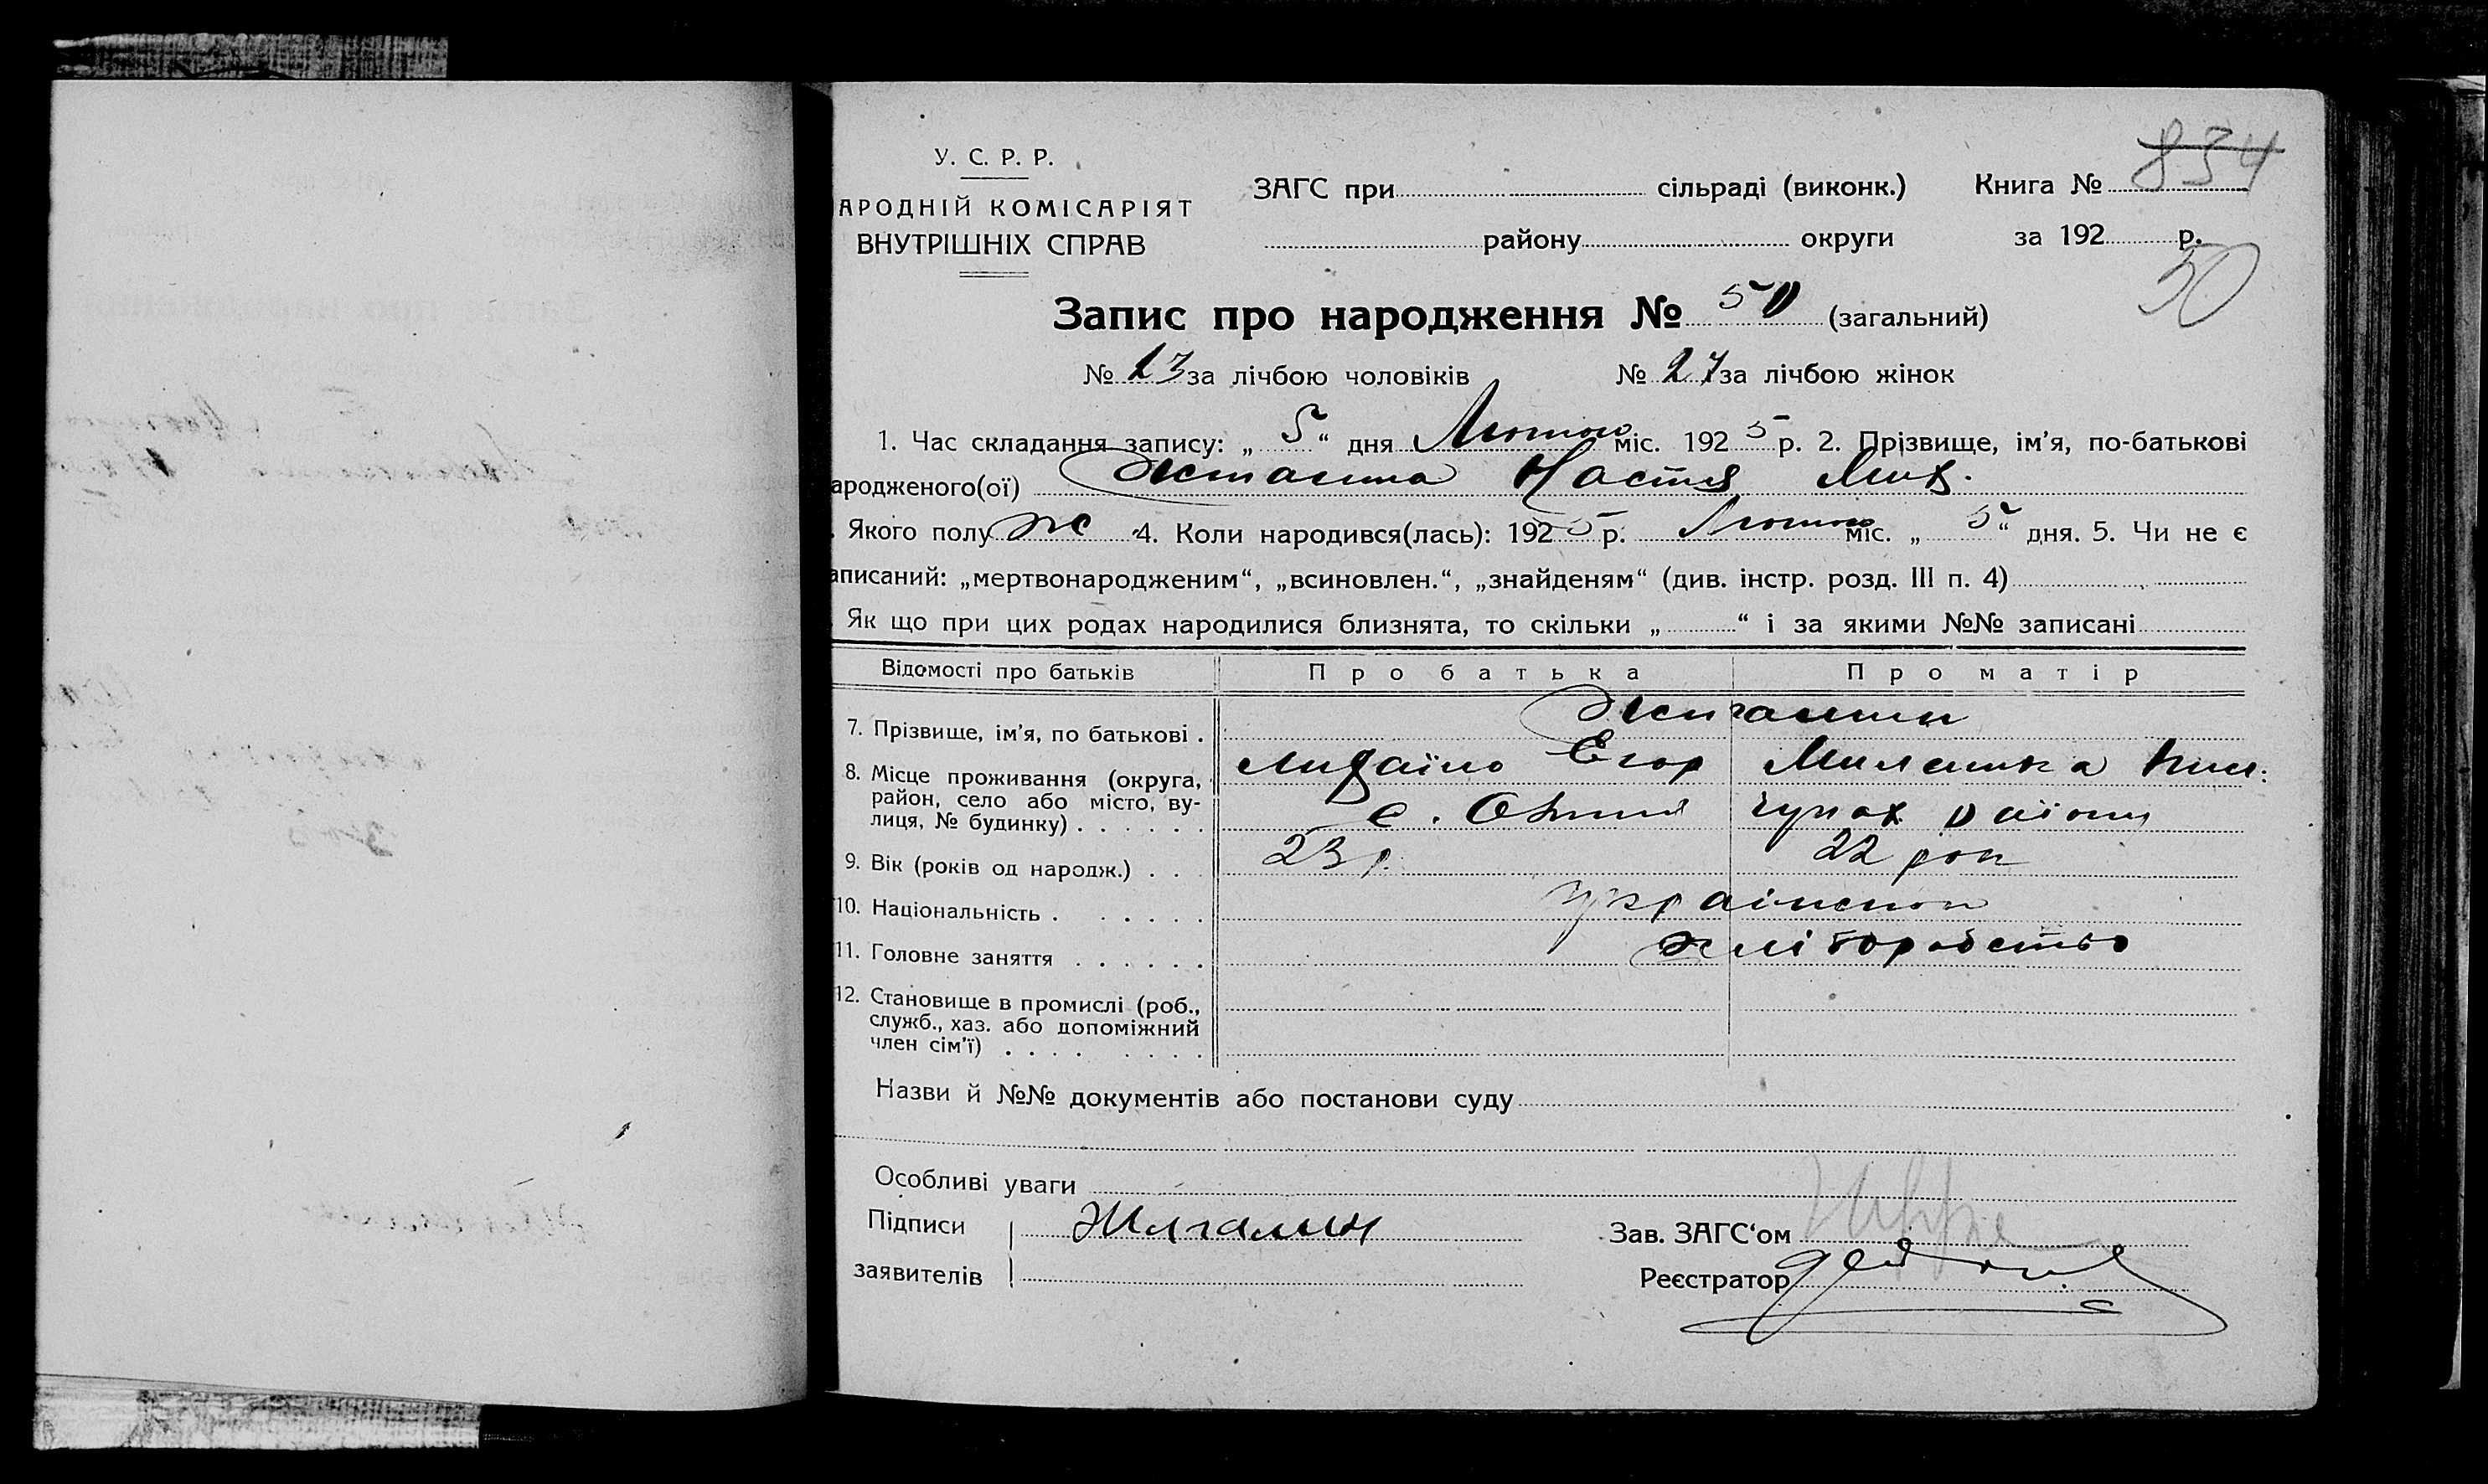 У. С. Р. Р.
АРОДНІЙ КОМІСАРІЯТ
ВНУТРІШНІХ СПРАВ
ЗАГС при сільраді (виконк.) Книга № 834
району округи за 192 р.
50
Запис про народження № 50 (загальний)
№ 23 за лічбою чоловіків № 27 за лічбою жінок
1. Час складання запису: „ 5 “ дня Лютого міс. 192 5 р. 2. Прізвище, ім’я, по-батькові
ародженого(ої) Настя Мих.
Якого полу ж 4. Коли народився(лась): 192 5 р. Лютого міс. „ 5 “ дня. 5. Чи не є
аписаний: „мертвонародженим“, „всиновлен.“, „знайденям“ (див. інстр. розд. III п. 4)
Як що при цих родах народилися близнята, то скільки „ “ і за якими №№ записані
Відомості про батьків Про батька Про матір
7. Прізвище, ім’я, по батькові .
Михайло Егор Миланка
8. Місце проживання (округа, район, село або місто, вулиця, № будинку) . . . . . . с. району
9. Вік (років од народж.) . . 23 р. 22 рок
10. Національність . . . . . .
11. Головне заняття . . . . . . хліборобство
12. Становище в промислі (роб., служб., хаз. або допоміжний член сім’ї) . . . . . . . .
Назви й №№ документів або постанови суду
Особливі уваги
Підписи Жигалин Зав. ЗАГС‘ом
заявителів Реєстратор